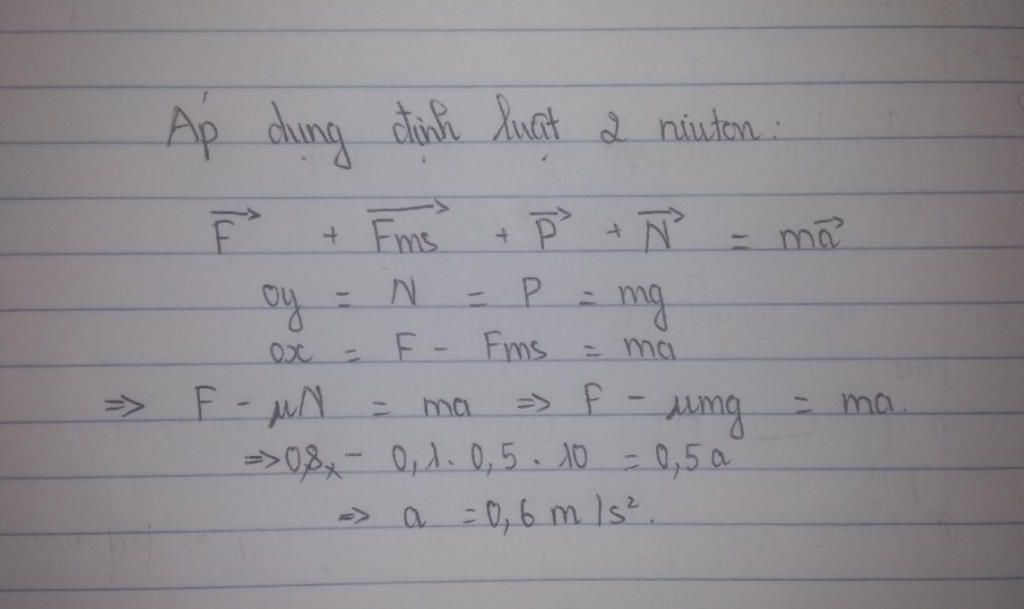 Áp dụng định luật 2 niuton:
F→ + Fms→ + P→ + N→ = ma→
oy = N = P = mg
ox = F - Fms = ma
=> F - μN = ma => F - μmg = ma.
=> 0,8 - 0,1. 0,5 . 10 = 0,5a
=> a = 0,6 m/s².